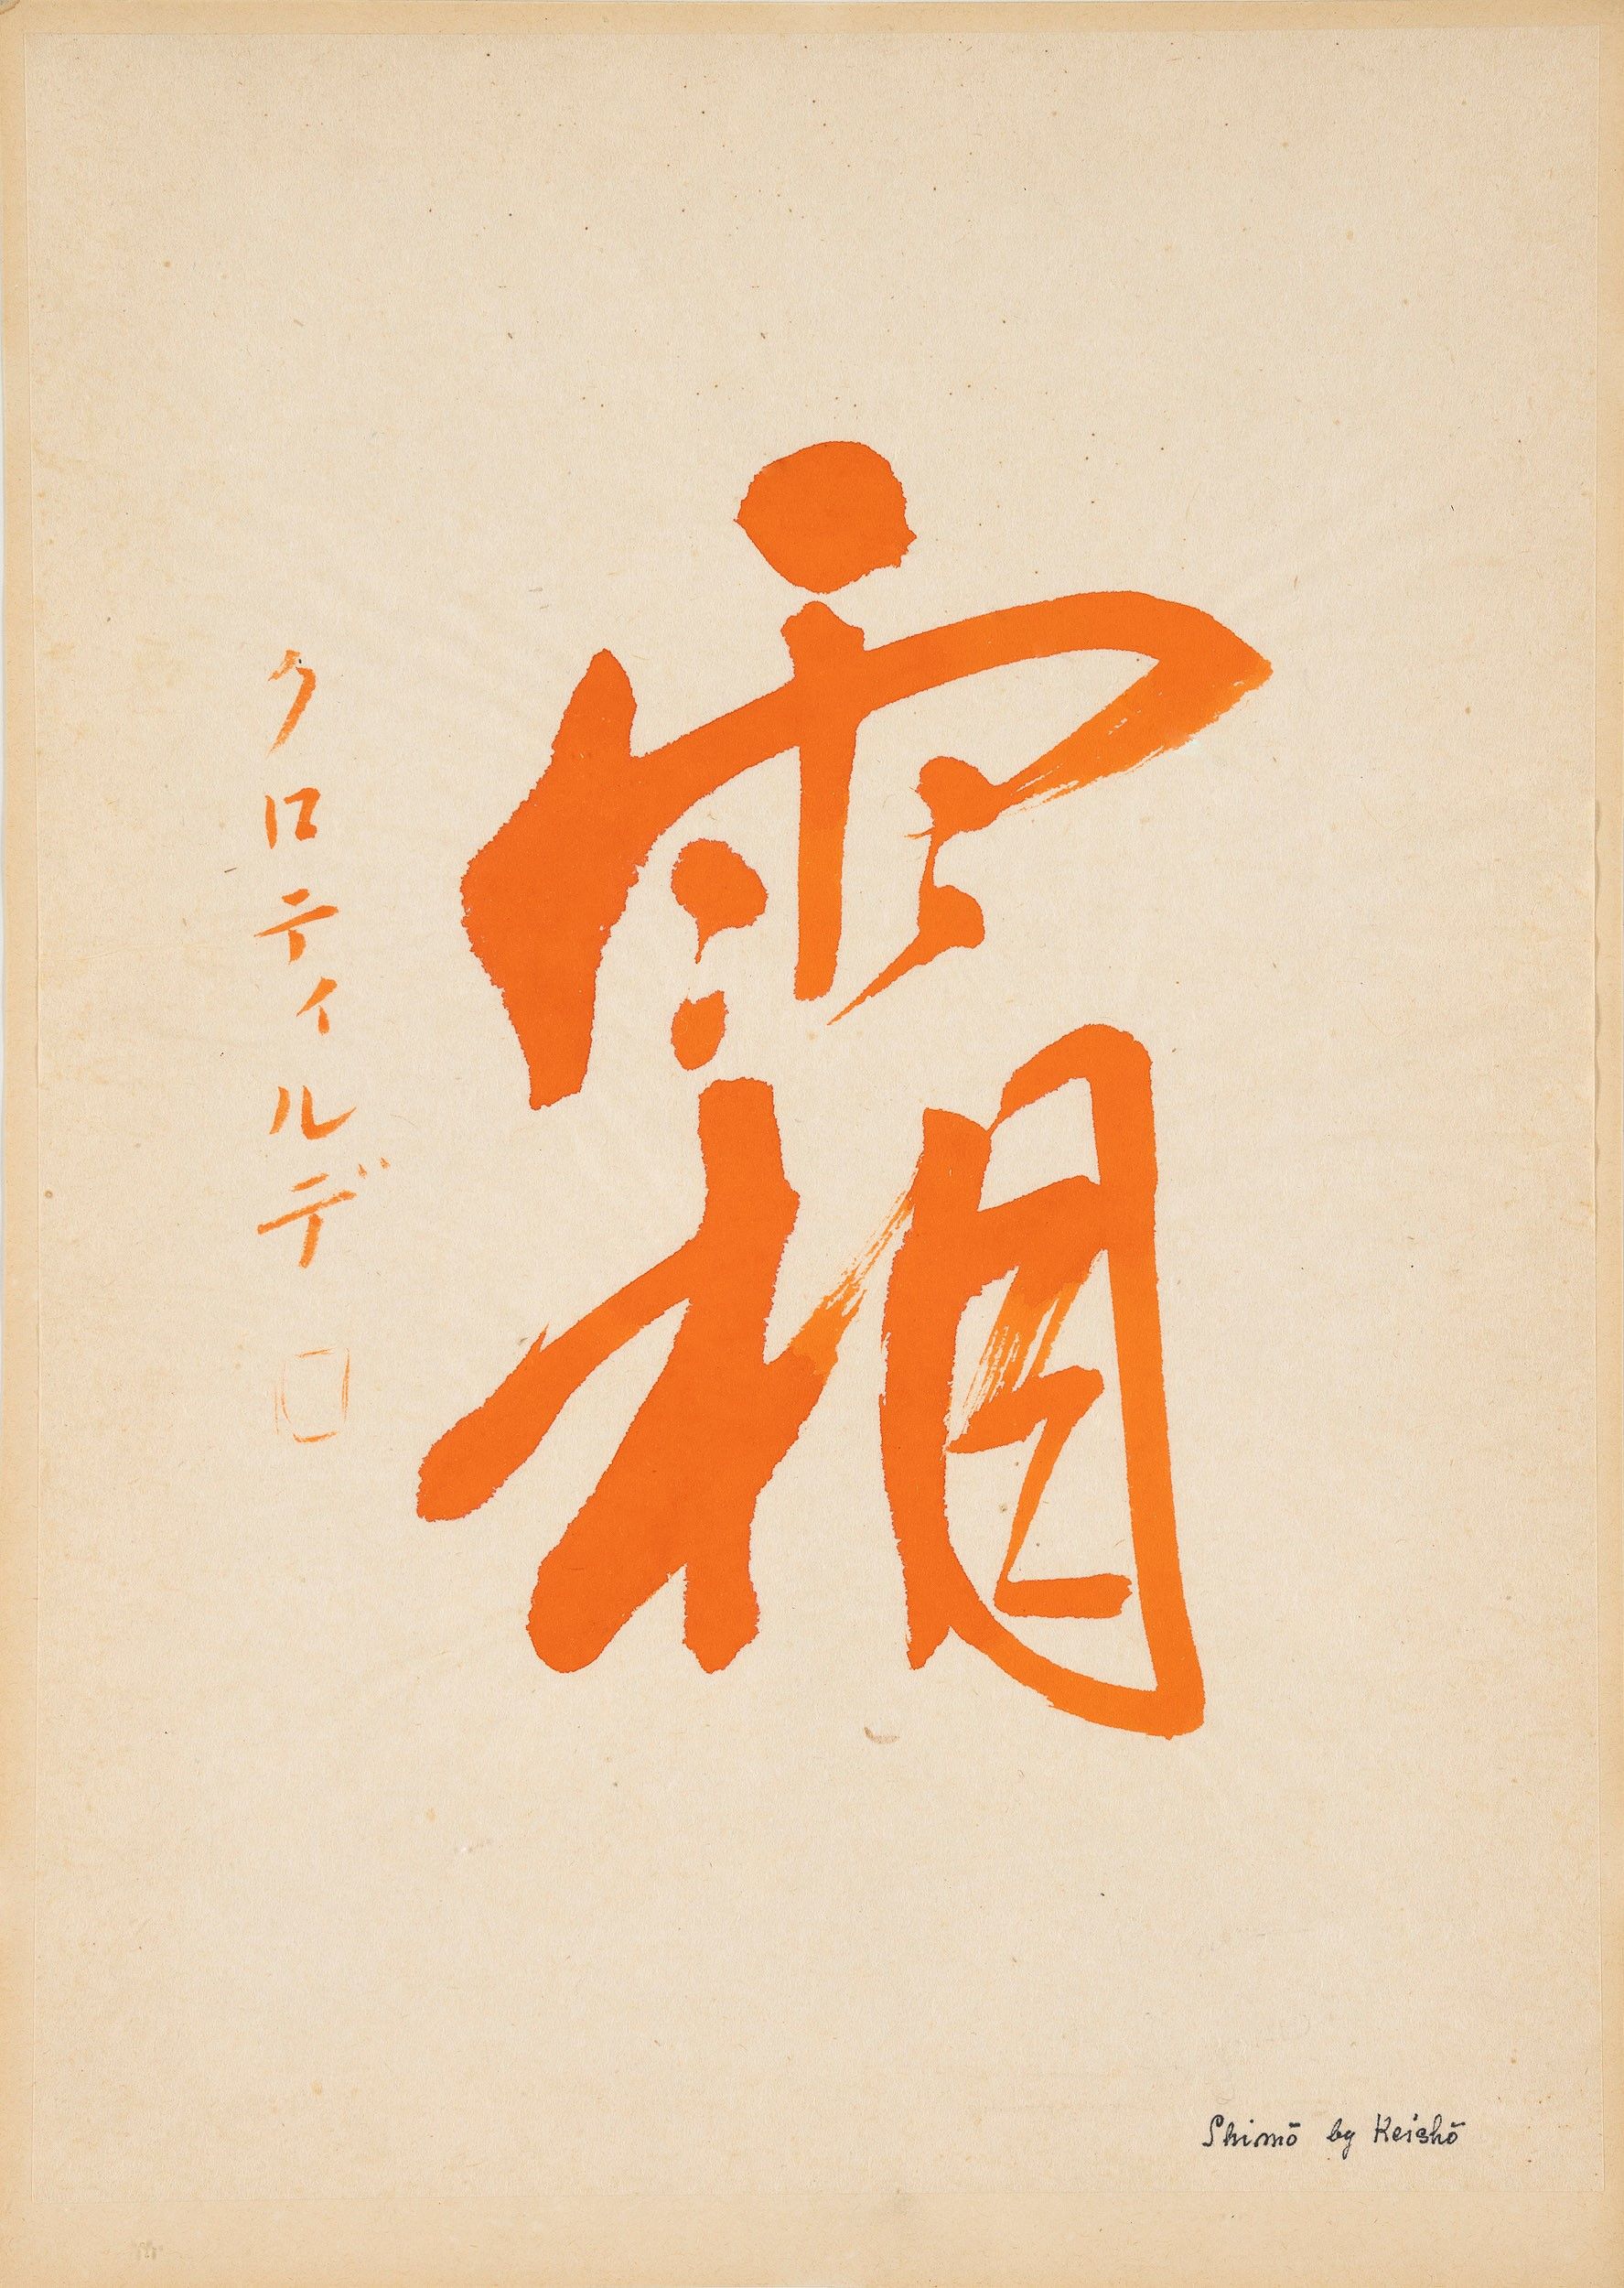 霜
クロティルデ
Shimō by Keishō